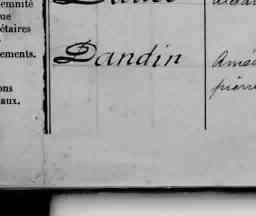 emnité
ue
étaires
ements.
Dandin
Amé
pierre
ons
aux.